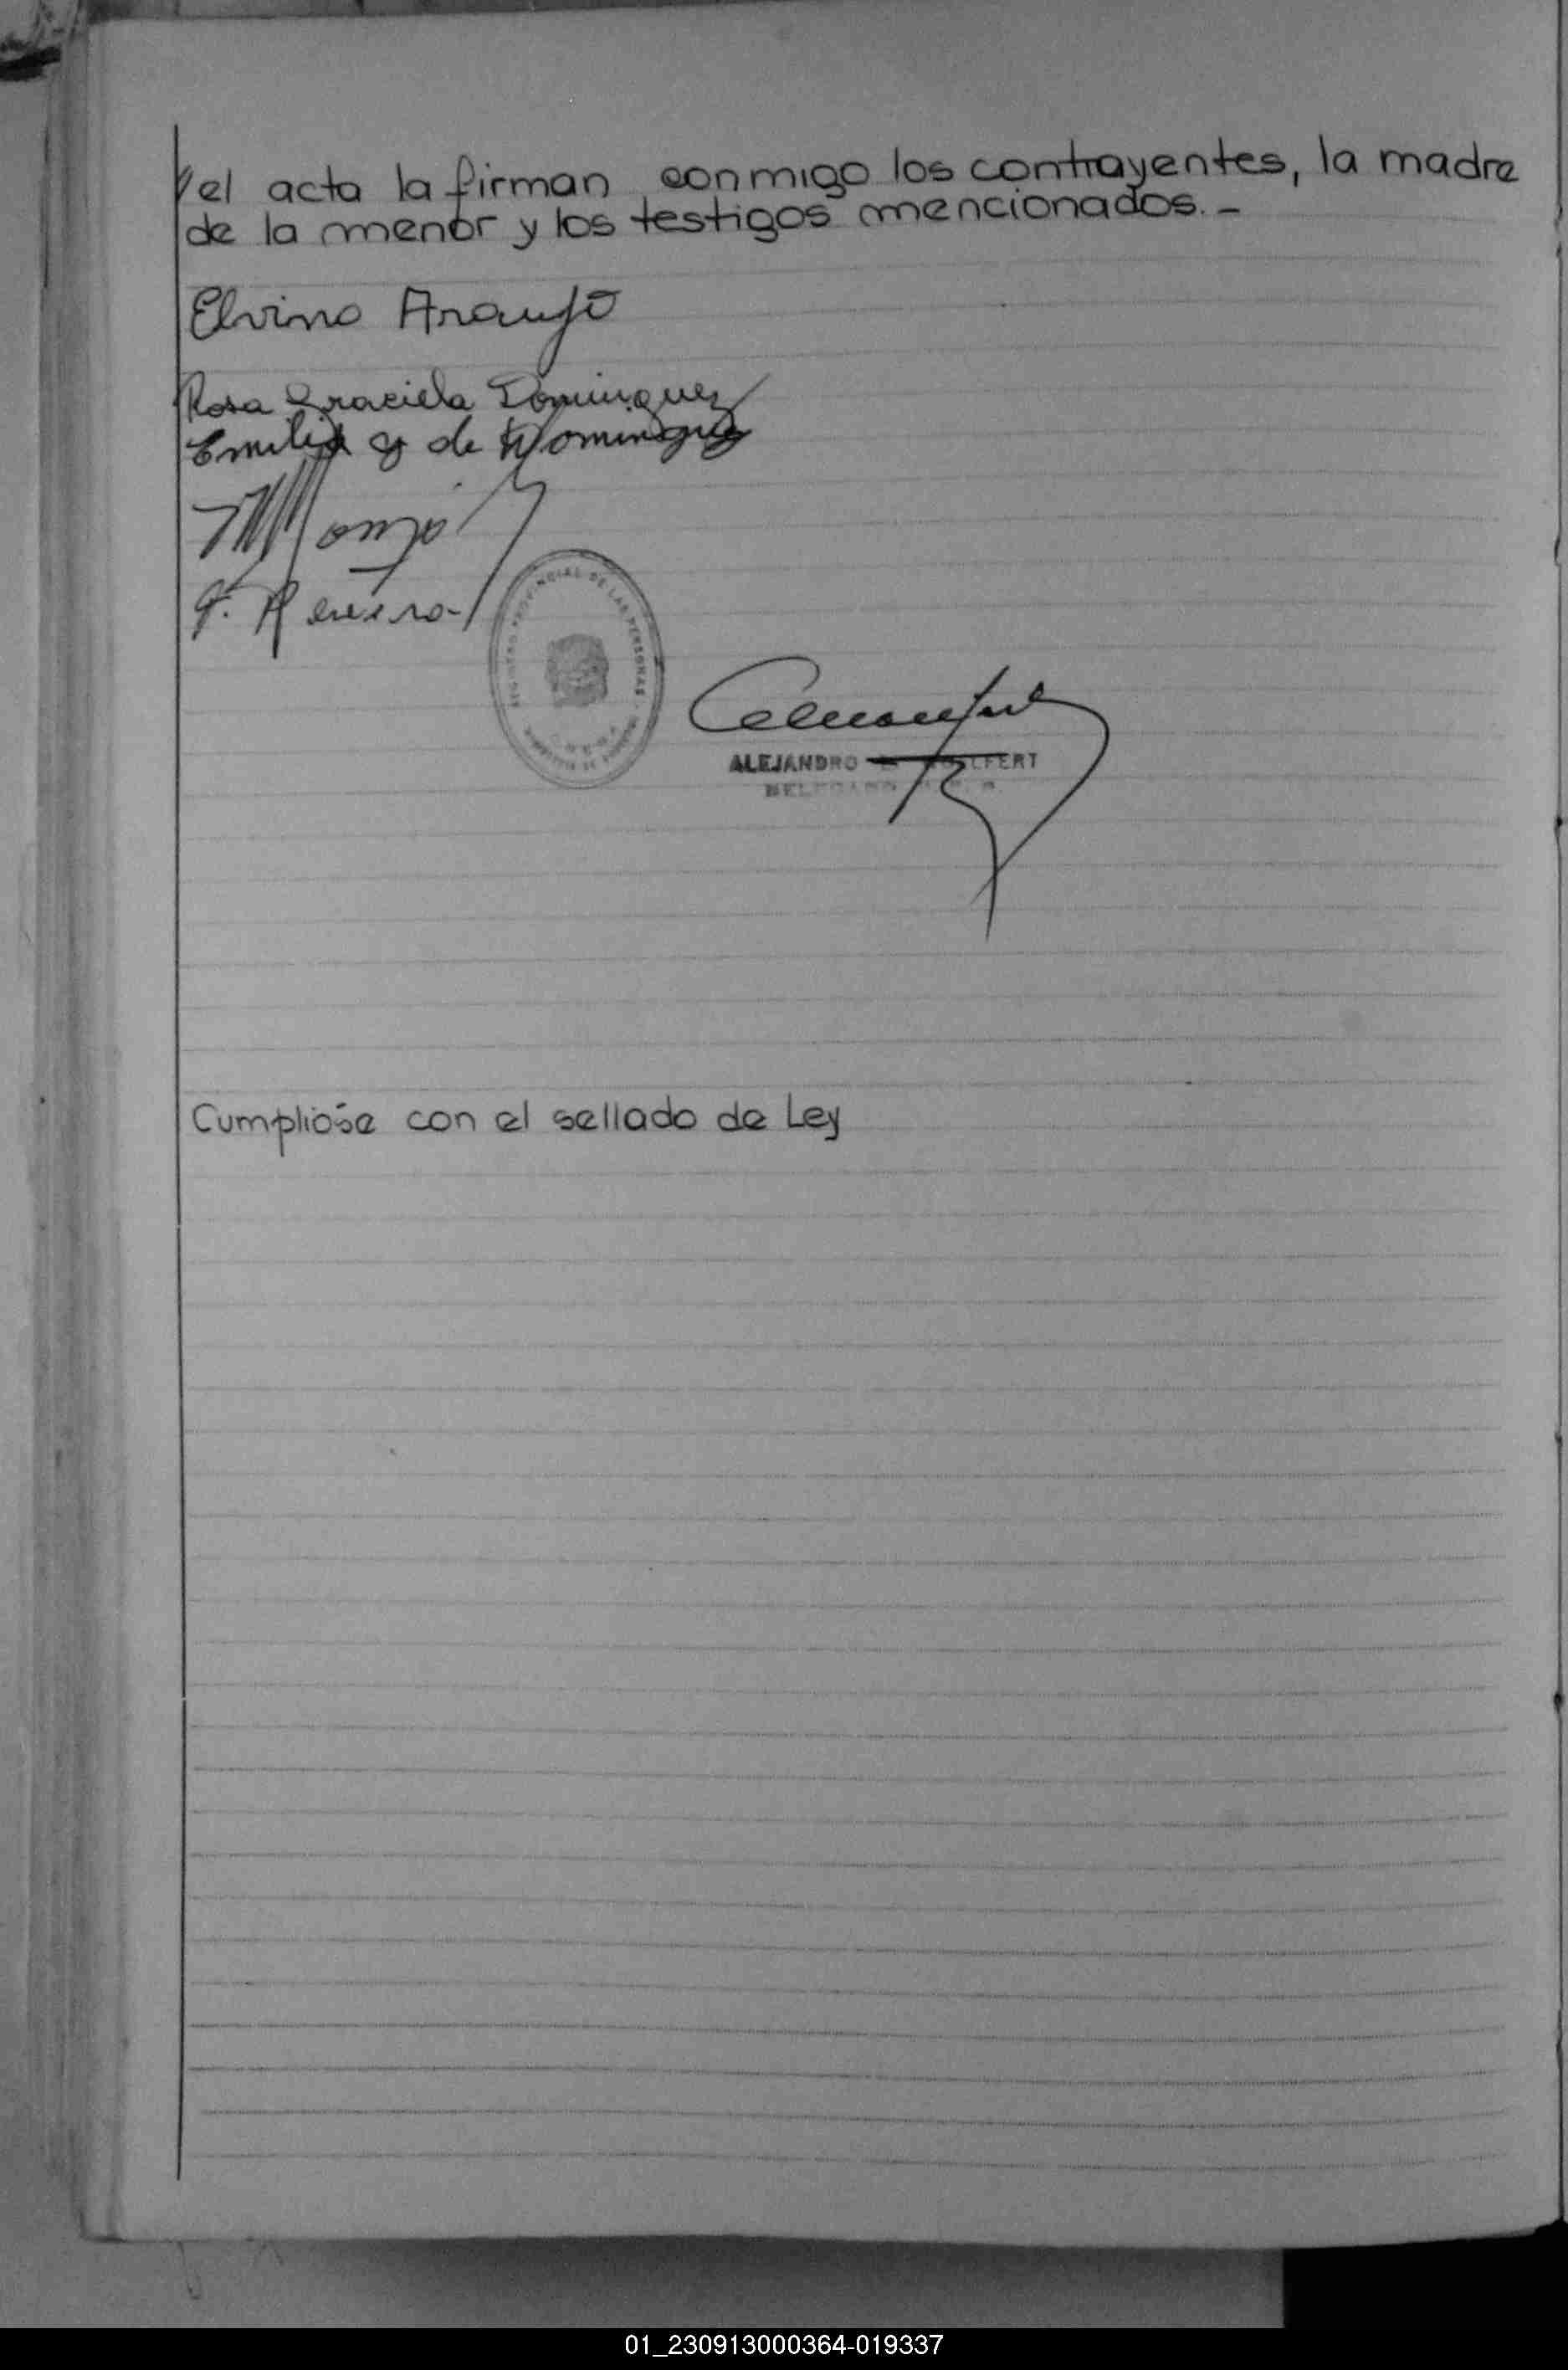 /el acta la firman conmigo los contrayentes, la madre
de la menor y los testigos mencionados. -
Elvino Araujo
Rosa Graciela Dominguez
Emilia de Dominguez
REGISTRO PROVINCIAL DE LAS PERSONAS
ALEJANDRO
Cumplióse con el sellado de Ley
01_230913000364-019337